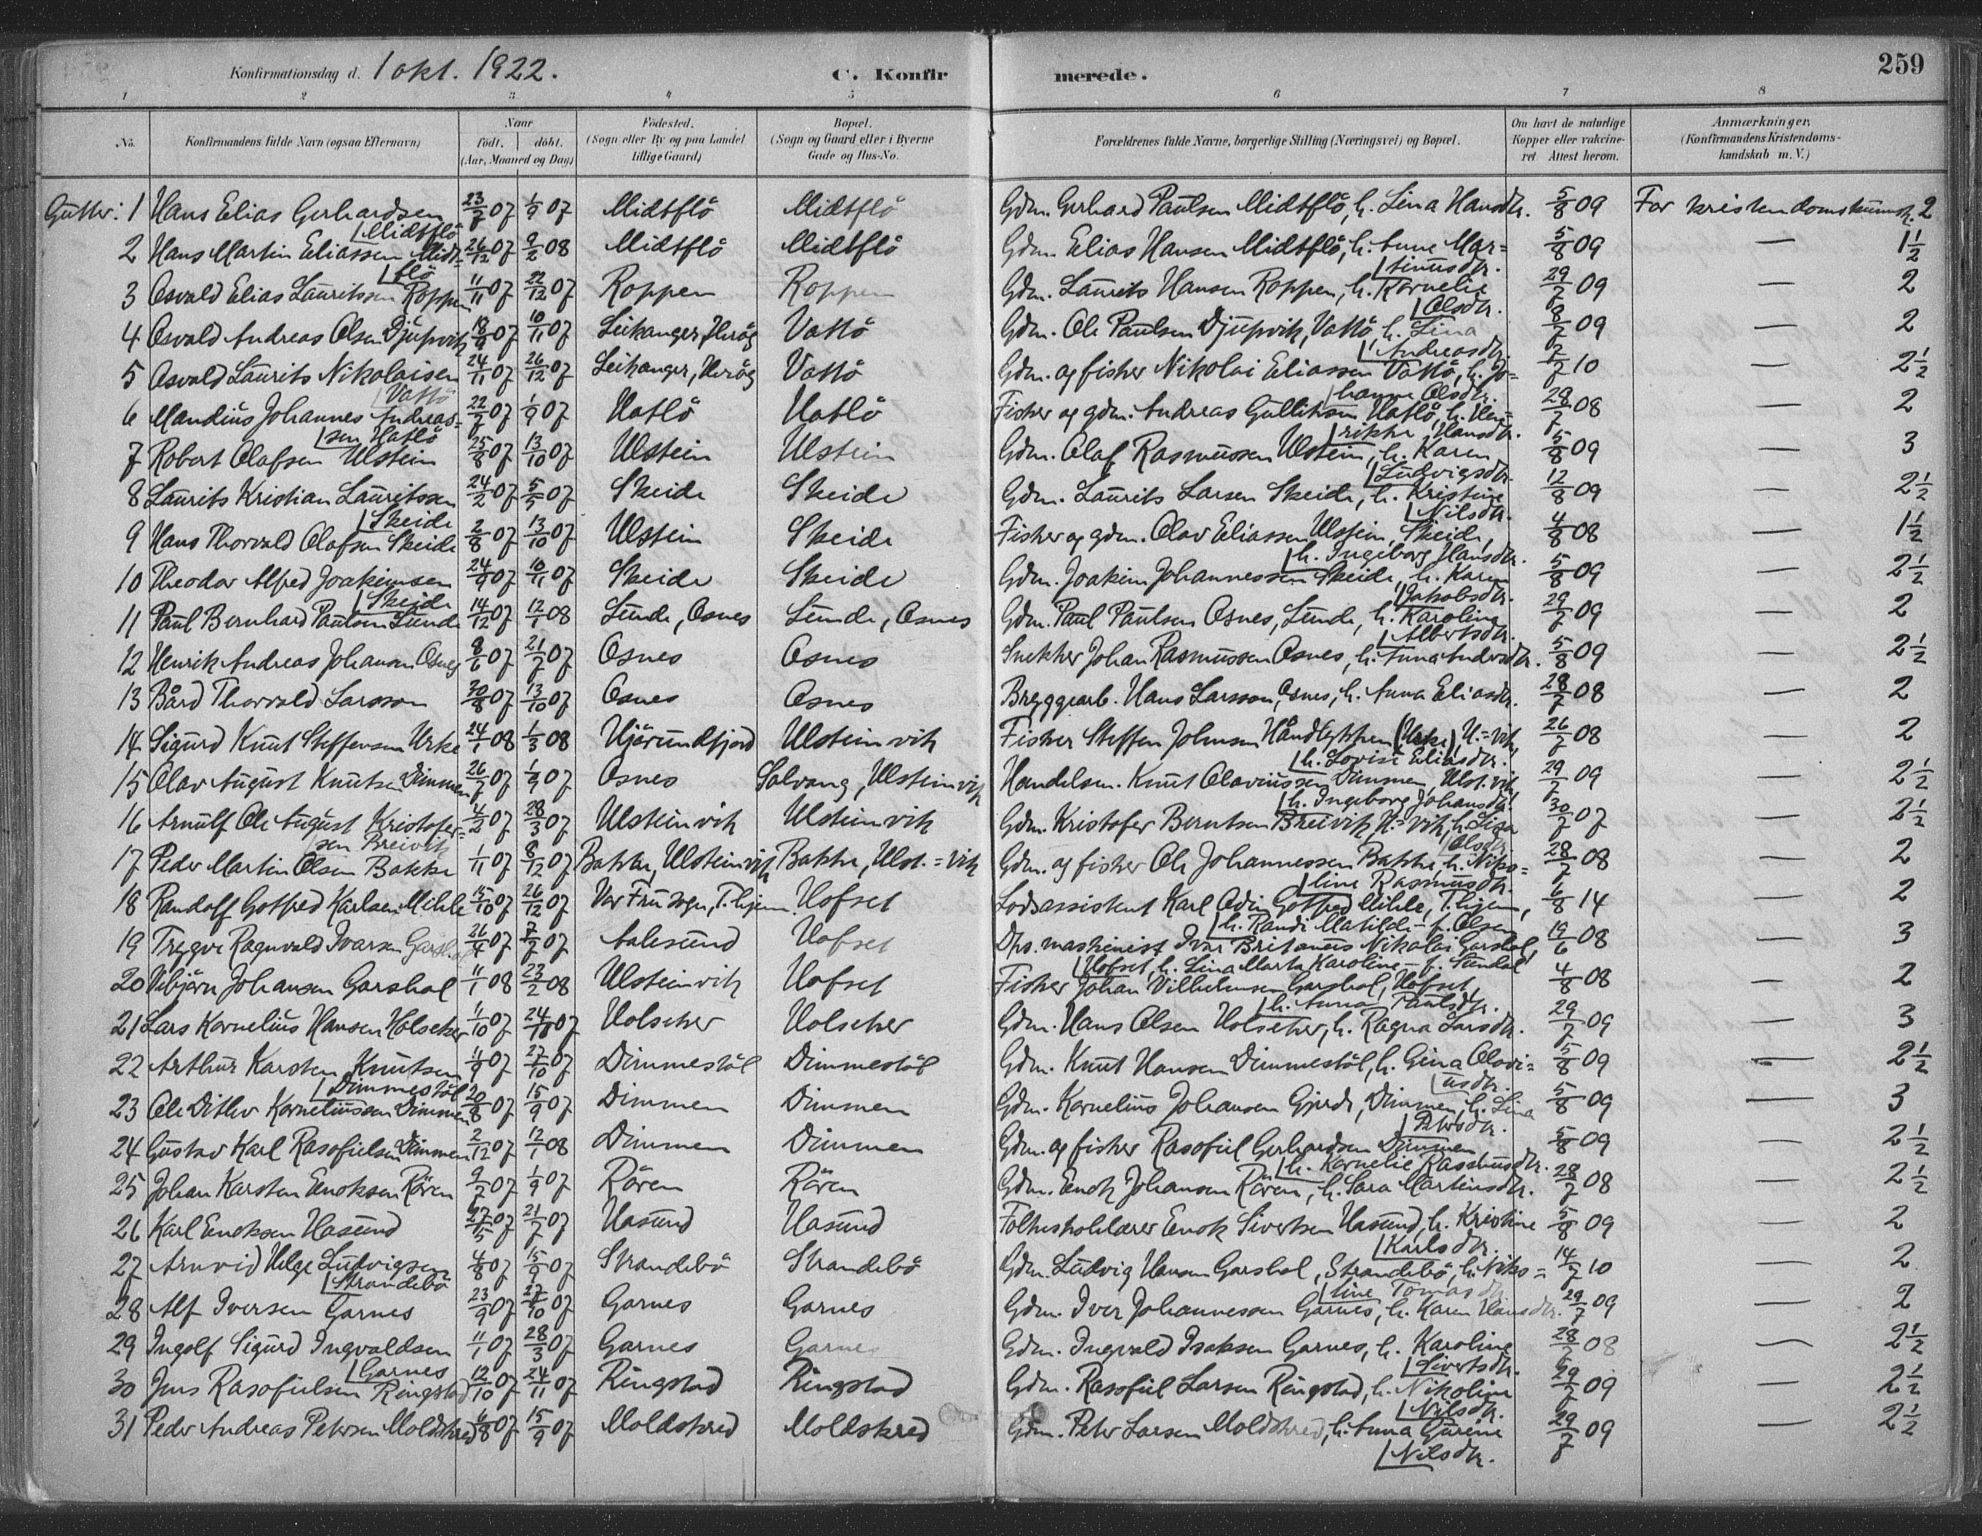 Konfirmationsdag d. 1 okt. 1922. C. Konfirmerede. 259
1 2 3 4 5 6 7 8
No. Konfirmandens fulde Navn (ogsaa Efternavn) Naar født. døbt. (Aar, Maaned og Dag) Fødested. (Sogn eller By og paa Landet tillige Gaard) Bopæl. (Sogn og Gaard eller i Byerne Gade og Hus-No. Forældrenes fulde Navne, borgerlige Stilling (Næringsvei) og Bopæl. Om havt de naturlige Kopper eller vakcineret. Attest herom. Anmærkninger. (Konfirmandens Kristendomskundskab m. V.)
Gutter: 1 Hans Elias Gerhardsen Midtflö 23/7 07 1/9 07 Midtflö Midtflö Gdm. Gerhard Paulsen Midtflö, h. Lina Hansdtr. 5/8 09 For kristendomskunsk. 2
2 Hans Martin Eliassen Midtflö 26/12 07 9/2 08 Midtflö Midtflö Gdm. Elias Hansen Midtflö, h. Anne Martinusdtr. 5/8 09 — 1½
3 Osvald Elias Lauritssen Roppen 11/11 07 22/12 07 Roppen Roppen Gdm. Laurits Hansen Roppen, h. Kornelie Olsdtr. 29/7 09 — 2
4 Osvald Andreas Olsen Djupvik 18/9 07 10/11 07 Leikanger, Heröy Vattö Gdm. Ole Paulsen Djupvik, Vattö, h. Lina Andreasdtr. 8/7 09 — 2
5 Osvald Laurits Nikolaisen Vattö 24/11 07 26/12 07 Leikanger, Heröy Vattö Gdm. og fisker Nikolai Eliassen Vattö, h. Johanne Olsdtr. 10 — 2½
6 Mandius Johannes Andreassen Hatlö 22/7 07 1/9 07 Hatlö Hatlö Fisker og gdm. Andreas Gulliksen Hatlö, h. Henrikke Hansdtr. 28/7 08 — 2
7 Robert Olafsen Ulstein 25/8 07 13/10 07 Ulstein Ulstein Gdm. Olaf Rasmussen Ulstein, h. Karen Ludvigsdtr. 5/8 09 — 3
8 Laurits Kristian Lauritssen Skeide 24/2 07 5/5 07 Skeide Skeide Gdm. Laurits Larsen Skeide, h. Kristine Nilsdtr. 12/8 09 — 2½
9 Hans Thorvald Olafsen Skeide 2/8 07 13/10 07 Ulstein Skeide Fisker og gdm. Olav Eliassen Ulstein, Skeide, h. Ingeborg Hansdtr. 4/8 08 — 1½
10 Theodor Alfred Joakimsen Skeide 24/9 07 10/11 07 Skeide Skeide Gdm. Joakim Johannessen Skeide, h. Karen Jakobsdtr. 5/8 09 — 2½
11 Paul Bernhard Paulsen Sunde 14/12 07 12/1 08 Sunde, Osnes Sunde, Osnes Gdm. Paul Paulsen Osnes, Sunde, h. Karoline Albertsdtr. 29/7 09 — 2
12 Henrik Andreas Johansen Osnes 8/6 07 21/7 07 Osnes Osnes Snekker Johan Rasmussen Osnes, h. Anna Andersdtr. 5/8 09 — 2½
13 Bård Thorvald Larsson 30/8 07 13/10 07 Osnes Osnes Bryggearb. Hans Larsson, Osnes, h. Anna Eliasdtr. 28/7 08 — 2
14 Sigurd Knut Steffensen Urke 24/1 08 1/3 08 Hjörundfjord Ulsteinvik Fisker Steffen Johnsen (Urke) U.=vik, h. Lovise Eliasdtr. 26/7 08 — 2
15 Olav August Knutsen Dimmen 26/7 07 1/9 07 Osnes Solvang, Ulsteinvik Handelsm. Knut Olaviussen Dimmen, Ulst.vik h. Ingeborg Johansdtr. 29/7 09 — 2½
16 Arnulf Ole August Kristofersen Breivik 4/2 07 28/3 07 Ulsteinvik Ulsteinvik Gdm. Kristofer Berntsen Breivik, U.=vik, h. Lisa Olsdtr. 30/7 07 — 2½
17 Peder Martin Olsen Bakke 1/11 07 8/12 07 Bakke, Ulsteinvik Bakke, Ulst.=vik Gdm. og fisker Ole Johannessen Bakke, h. Nikoline Rasmusdtr. 28/7 08 — 2
18 Randolf Gotfred Karlsen Mihle 15/10 07 26/12 07 Vor Frue sogn, T.hjem. Hofset Lodsassistent Karl Odin Gotfred Mihle, T.hjem, h. Randi Matilde f. Olsen 6/8 14 — 2
19 Trygve Ragnvald Ivarsen Garshol 26/4 07 7/7 07 Aalesund Hofset Dps. maskinist Ivar Nikolai Garshol, Hofset, h. Lina Marta Karoline f. Sundal 19/6 08 — 3
20 Vebjörn Johansen Garshol 11/1 08 23/2 08 Ulsteinvik Hofset Fisker Johan Vilhelmsen Garshol, Hofset, h. Anna Paulsdtr. 4/8 08 — 2
21 Lars Kornelius Hansen Holseker 1/10 07 24/10 07 Holseker Holseker Gdm. Hans Olsen Holseker, h. Ragna Larsdtr. 29/7 09 — 3
22 Arthur Karsten Knutsen Dimmestöl 11/9 07 27/10 07 Dimmestöl Dimmestöl Gdm. Knut Hansen Dimmestöl, h. Gina Olaviusdtr. 5/8 09 — 2½
23 Ole Ditlev Korneliussen Dimmen 20/8 07 15/9 07 Dimmen Dimmen Gdm. Kornelius Johansen Gjerde, Dimmen, h. Lina Petersdtr. 5/8 09 — 3
24 Gustav Karl Rasofielsen Dimmen 2/12 07 12/1 08 Dimmen Dimmen Gdm. og fisker Rasofiel Gerhardsen Dimmen h. Kornelie Rasmusdtr. 5/8 09 — 2½
25 Johan Karsten Enoksen Rären 9/7 07 1/9 07 Rären Rären Gdm. Enok Johansen Rären, h. Sara Martinsdtr. 28/7 08 — 2½
26 Karl Enoksen Hasund 27/5 07 21/7 07 Hasund Hasund Folkeskolelærer Enok Sivertsen Hasund, h. Kristine Karlsdtr. 5/8 09 — 2
27 Arnvid Helge Ludvigsen Strandebö 4/8 07 15/9 07 Strandebö Strandebö Gdm. Ludvig Hansen Garshol, Strandebö, h. Nikoline Tomasdtr. 14/7 10 — 2
28 Alf Iversen Garnes 23/9 07 27/10 07 Garnes Garnes Gdm. Iver Johannessen Garnes, h. Karen Hansdtr. 29/7 09 — 2
29 Ingolf Sigurd Ingvaldsen Garnes 11/1 07 28/3 07 Garnes Garnes Gdm. Ingvald Isaksen Garnes, h. Karoline Sivertsdtr. 28/7 08 — 2½
30 Jens Rasofielsen Ringstad 12/10 07 24/11 07 Ringstad Ringstad Gdm. Rasofiel Larsen Ringstad, h. Nikoline Nilsdtr. 29/7 09 — 2½
31 Peder Andreas Petersen Moldskred 6/8 07 15/9 07 Moldskred Moldskred Gdm. Peter Larsen Moldskred, h. Anna Gurine Nilsdtr. 29/7 09 — 2½